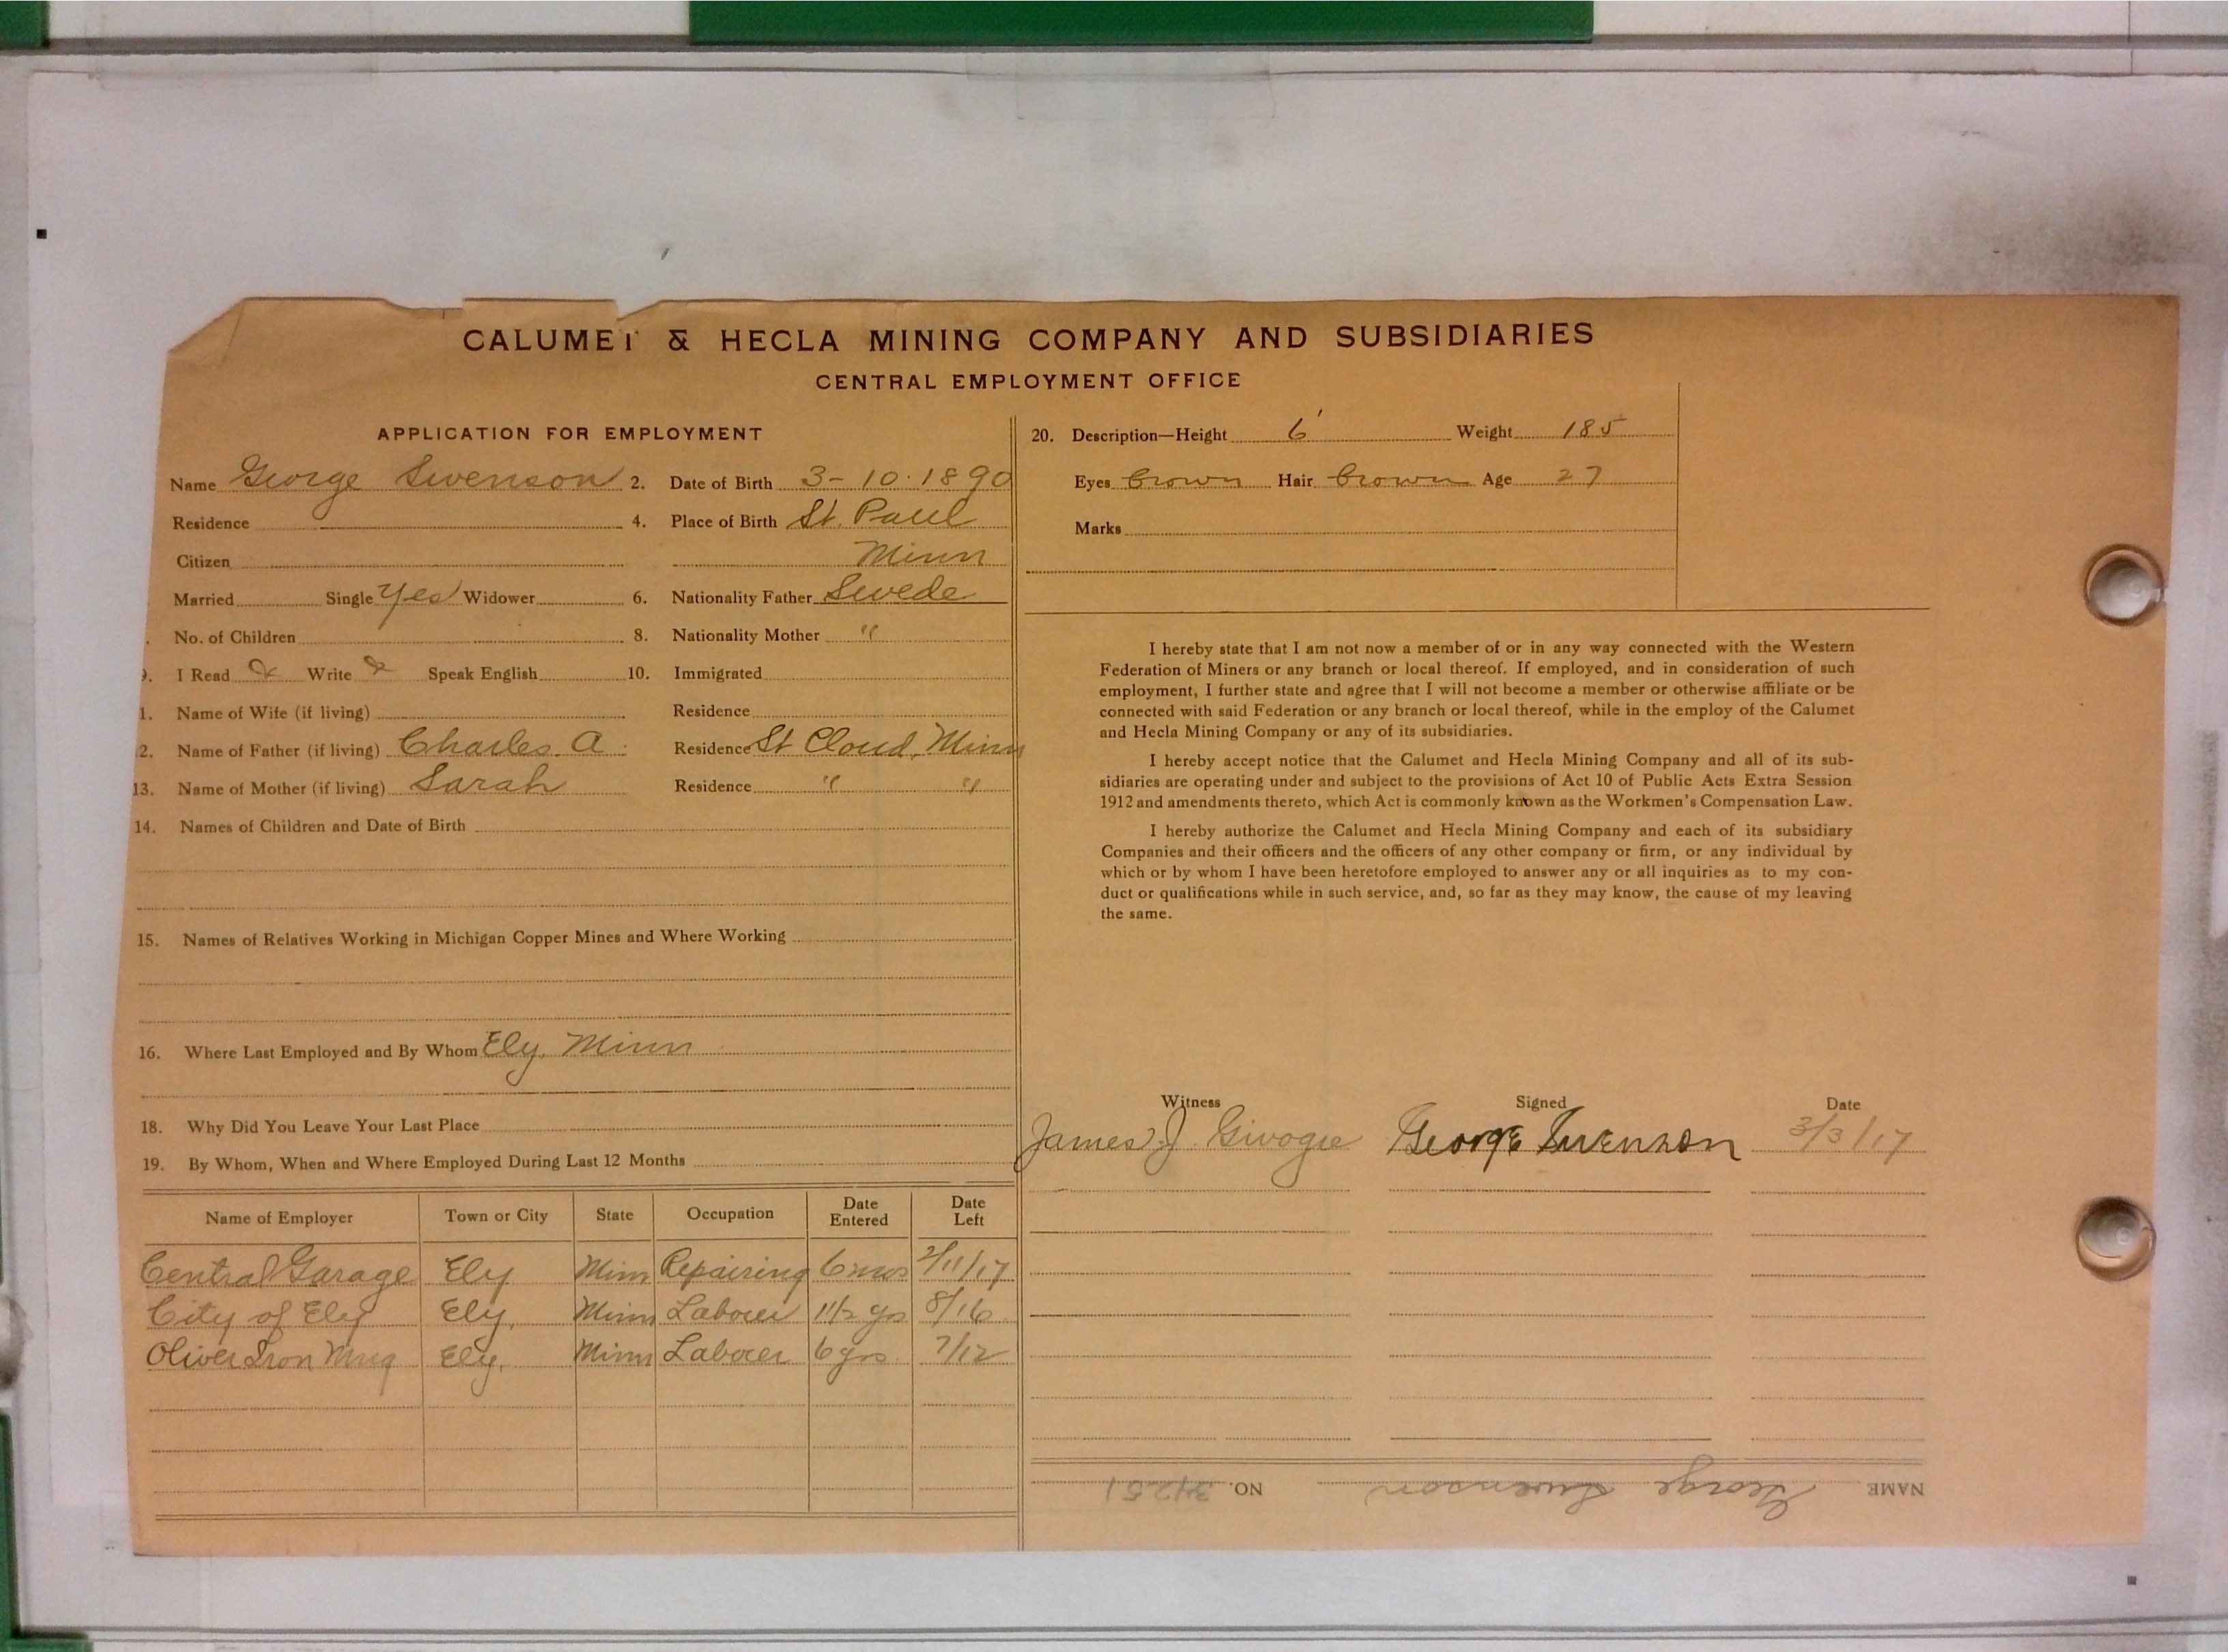 CALUMET & HECLA MINING COMPANY AND SUBSIDIARIES
CENTRAL EMPLOYMENT OFFICE
APPLICATION FOR EMPLOYMENT
Name George Swenson 2. Date of Birth 3-10-1890
Residence 4. Place of Birth St. Paul
Citizen Minn
Married Single Yes Widower 6. Nationality Father Swede
No. of Children 8. Nationality Mother "
9. I Read Write Speak English 10. Immigrated
1. Name of Wife (if living) Residence
2. Name of Father (if living) Charles A. Residence St Cloud, Minn
13. Name of Mother (if living) Sarah Residence " "
14. Names of Children and Date of Birth
15. Names of Relatives Working in Michigan Copper Mines and Where Working
16. Where Last Employed and By Whom Ely, Minn
18. Why Did You Leave Your Last Place
19. By Whom, When and Where Employed During Last 12 Months
Name of Employer Town or City State Occupation Date Entered Date Left
Central Garage Ely Minn Repairing 6 mos 2/11/17
City of Ely Ely, Minn Laborer 1 1/2 yrs 8/16
Oliver Iron Mng Ely, Minn Laborer 6 yrs 7/12
20. Description—Height 6' Weight 185
Eyes brown Hair brown Age 27
Marks
I hereby state that I am not now a member of or in any way connected with the Western
Federation of Miners or any branch or local thereof. If employed, and in consideration of such
employment, I further state and agree that I will not become a member or otherwise affiliate or be
connected with said Federation or any branch or local thereof, while in the employ of the Calumet
and Hecla Mining Company or any of its subsidiaries.
I hereby accept notice that the Calumet and Hecla Mining Company and all of its sub-
sidiaries are operating under and subject to the provisions of Act 10 of Public Acts Extra Session
1912 and amendments thereto, which Act is commonly known as the Workmen's Compensation Law.
I hereby authorize the Calumet and Hecla Mining Company and each of its subsidiary
Companies and their officers and the officers of any other company or firm, or any individual by
which or by whom I have been heretofore employed to answer any or all inquiries as to my con-
duct or qualifications while in such service, and, so far as they may know, the cause of my leaving
the same.
Witness Signed Date
James J. George Swenson 3/3/17
NAME George Swenson NO.